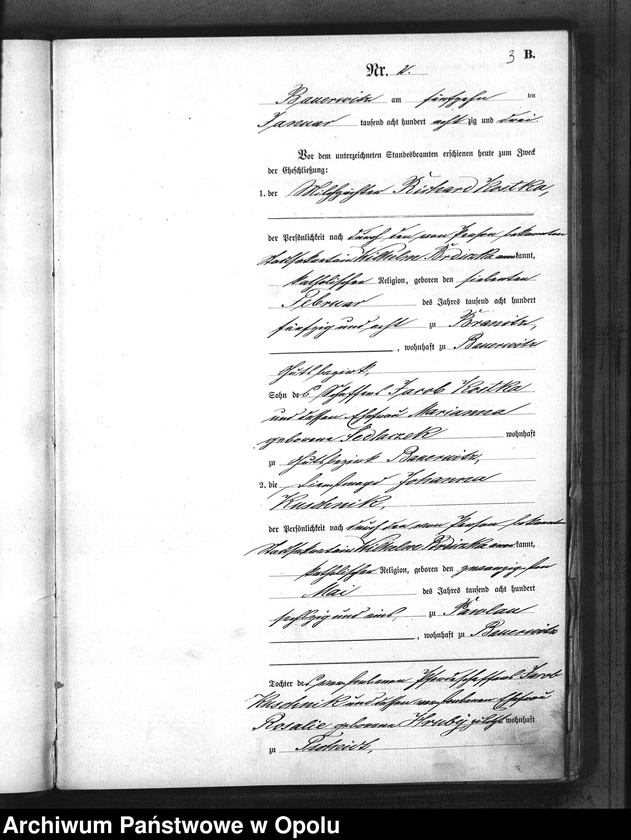 3 B.
Nr. 2.
Bauerwitz am fünfzehn ten
Januar tausend acht hundert acht zig und drei
Vor dem unterzeichneten Standesbeamten erschienen heute zum Zweck
der Eheschließung:
1. der Richard Kostka,
der Persönlichkeit nach durch den von Person bekannten
Stadtsekretair Wilhelm anerkannt,
katholischer Religion, geboren den siebenten
Februar des Jahres tausend acht hundert
fünfzig und acht zu Branitz,
, wohnhaft zu Bauerwitz
Gutsbezirk,
Sohn des Schaffers Jacob Kostka
und dessen Ehefrau Marianna
geborene Sedlaczek wohnhaft
zu Gutsbezirk Bauerwitz,
2. die Dienstmagd Johanna
Kuschnik,
der Persönlichkeit nach durch den von Person bekannten
Stadtsekretair Wilhelm anerkannt,
katholischer Religion, geboren den zwanzigsten
Mai des Jahres tausend acht hundert
sechszig und eins, zu Pawlau
, wohnhaft zu Bauerwitz
Tochter des verstorbenen Jacob
Kuschnik und dessen verstorbenen Ehefrau
Rosalie geborene Hruby zuletzt wohnhaft
zu
Archiwum Państwowe w Opolu